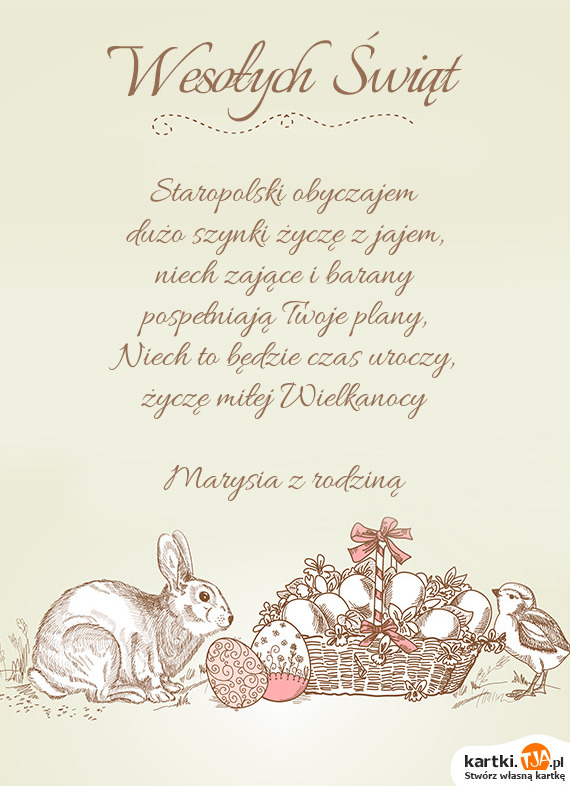 Wesołych Świąt
Staropolski obyczajem
dużo szynki życzę z jajem,
niech zające i barany
pospełniają Twoje plany,
Niech to będzie czas uroczy,
życzę miłej Wielkanocy
Marysia z rodziną
kartki.TJA.pl
Stwórz własną kartkę